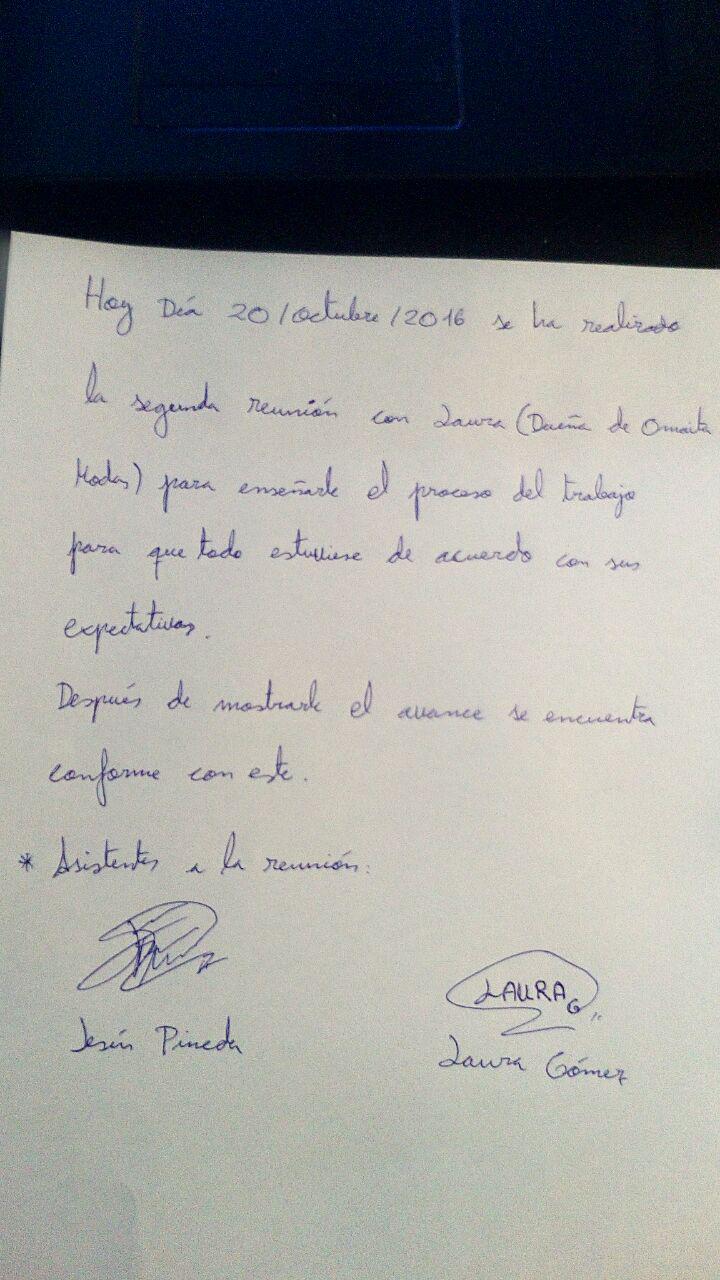 Hoy Día 20/octubre/2016 se ha realizado
la segunda reunión con Laura (Dueña de Omaita
Modas) para enseñarle el proceso del trabajo
para que todo estuviese de acuerdo con sus
expectativas.
Después de mostrarle el avance se encuentra
conforme con este.
* Asistentes a la reunión:
LAURA G
Jesús Pineda
Laura Gómez